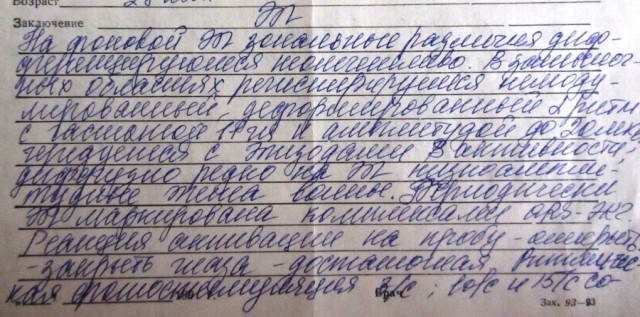 Возраст 28 лет
Заключение ЭГ
На фоновой ЭГ зональные различия диф-
ференцируются неотчетливо. В затылоч-
ных областях регистрируется немоду-
лированный, деформированный α ритм
с частотой Гц и амплитудой до 20 мкв
чередуется с эпизодами β активности,
диффузно редко на ЭГ низкоампли-
тудные тета волны. Периодически
ЭГ маркирована комплексами QRS-ЭКГ.
Реакция активации на пробу - открыть
-закрыть глаза - достаточная. Ритмичес-
кая фотостимуляция 8/с; 10/с и 15/с со-
Врач
Зак. 93-93